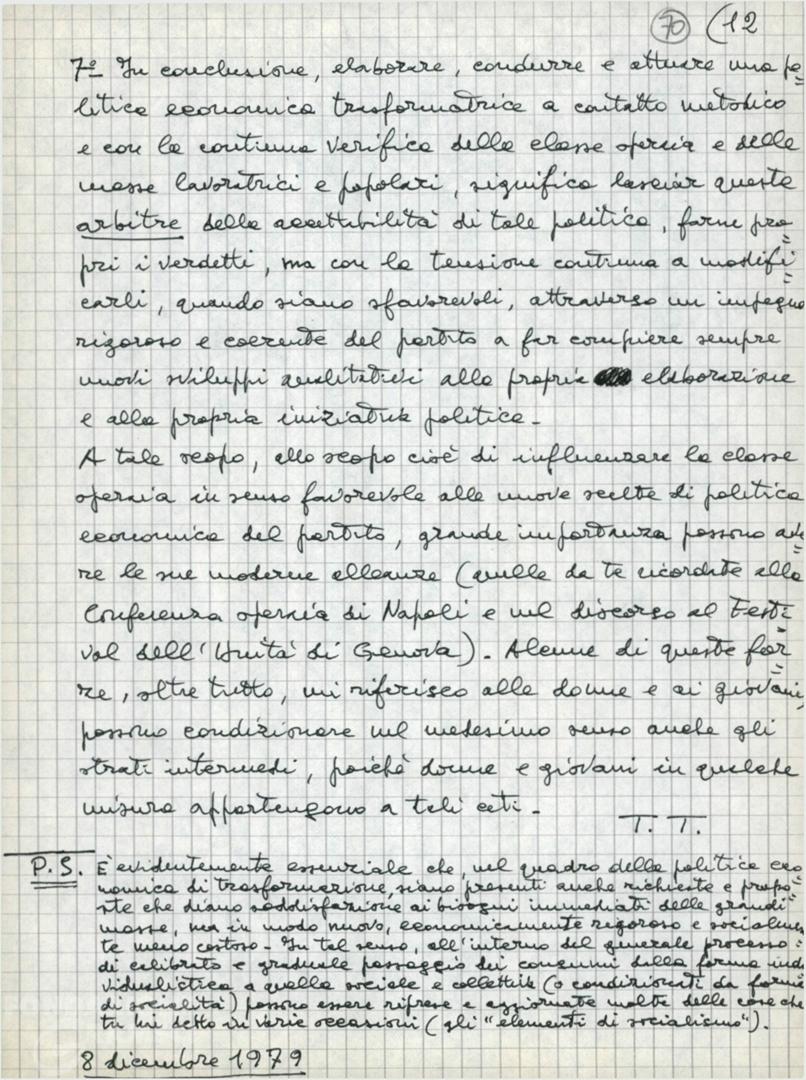 70 (12
7º In conclusione, elaborare, condurre e attuare una po=
litica economica trasformatrice a contatto metodico
e con la continua verifica della classe operaia e delle
masse lavoratrici e popolari, significa lasciar queste
arbitre della accettabilità di tale politica, farne pro=
pri i verdetti, ma con la tensione continua a modifi=
carli, quando siano sfavorevoli, attraverso un impegno
rigoroso e coerente del partito a far compiere sempre
nuovi sviluppi qualitativi alla propria elaborazione
e alla propria iniziativa politica.
A tale scopo, allo scopo cioè di influenzare la classe
operaia in senso favorevole alle nuove scelte di politica
economica del partito, grande importanza possono ave=
re le sue moderne alleanze (quelle da te ricordate alla
Conferenza operaia di Napoli e nel discorso al Festi=
val dell'Unità di Genova). Alcune di queste for=
ze, oltre tutto, mi riferisco alle donne e ai giovani,
possono condizionare nel medesimo senso anche gli
strati intermedi, poiché donne e giovani in qualche
misura appartengono a tali ceti.
T. T.
P.S. È evidentemente essenziale che, nel quadro della politica eco=
nomica di trasformazione, siano presenti anche richieste e propo=
ste che diano soddisfazione ai bisogni immediati delle grandi
masse, ma in modo nuovo, economicamente rigoroso e socialmen=
te meno costoso. In tal senso, all'interno del generale processo
di calibrato e graduale passaggio dei consumi dalla forma indi=
vidualistica a quella sociale e collettiva (o condizionati da forme
di socialità) possono essere riprese e aggiornate molte delle cose che
tu hai detto in varie occasioni (gli "elementi di socialismo").
8 dicembre 1979